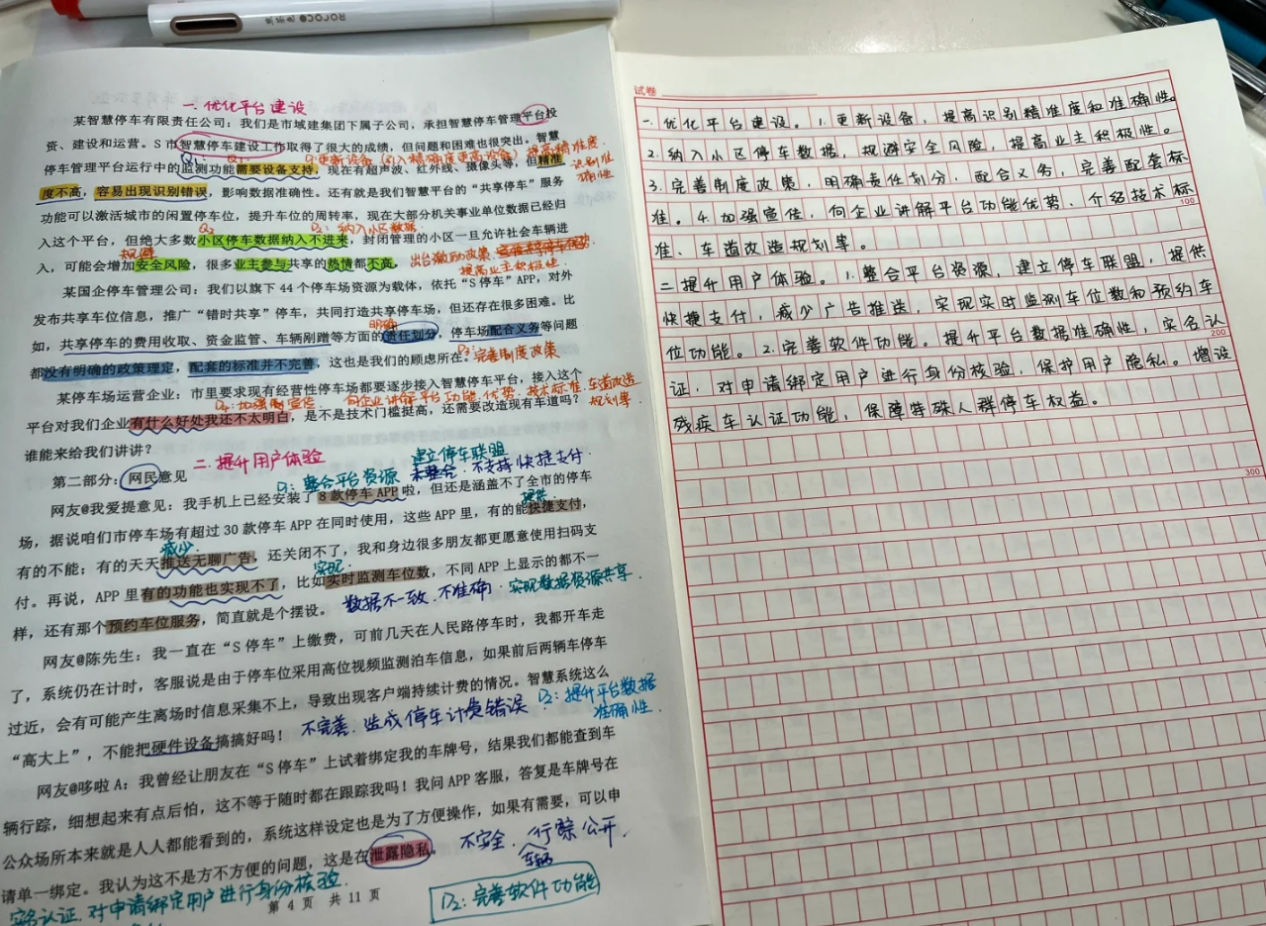 一. 优化平台建设
某智慧停车有限责任公司：我们是市城建集团下属子公司，承担智慧停车管理平台投
资、建设和运营。S 市智慧停车建设工作取得了很大的成绩，但问题和困难也很突出。智慧
D1:更新设备（引入精确度更高设备）提高精准度
识别准
确性
停车管理平台运行中的监测功能需要设备支持，现在有超声波、红外线、摄像头等，但精准
度不高，容易出现识别错误，影响数据准确性。还有就是我们智慧平台的“共享停车”服务
功能可以激活城市的闲置停车位，提升车位的周转率，现在大部分机关事业单位数据已经归
D2:纳入小区数据
入这个平台，但绝大多数小区停车数据纳入不进来，封闭管理的小区一旦允许社会车辆进
规避
入，可能会增加安全风险，很多业主参与共享的热情都不高。
出台激励政策
提高业主积极性
某国企停车管理公司：我们以旗下 44 个停车场资源为载体，依托“S 停车”APP，对外
发布共享车位信息，推广“错时共享”停车，共同打造共享停车场，但还存在很多困难。比
明确
如，共享停车的费用收取、资金监管、车辆剐蹭等方面的责任划分，停车场配合义务等问题
都没有明确的政策理定，配套的标准并不完善，这也是我们的顾虑所在。
D3:完善制度政策
某停车场运营企业：市里要求现有经营性停车场都要逐步接入智慧停车平台，接入这个
D4:加强宣传 向企业讲解平台功能.优势.技术标准.车道改造
规划等
平台对我们企业有什么好处我还不太明白，是不是技术门槛提高，还需要改造现有车道吗？
谁能来给我们讲讲？
二. 提升用户体验
建立停车联盟
第二部分：网民意见
D1:整合平台资源 未整合.不支持快捷支付.
网友@我爱提意见：我手机上已经安装了 8 款停车 APP 啦，但还是涵盖不了全市的停车
提供
场，据说咱们市停车场有超过 30 款停车 APP 在同时使用，这些 APP 里，有的能快捷支付，
减少
有的不能；有的天天推送无聊广告，还关闭不了，我和身边很多朋友都更愿意使用扫码支
实现
付。再说，APP 里有的功能也实现不了，比如实时监测车位数，不同 APP 上显示的都不一
样，还有那个预约车位服务，简直就是个摆设。
数据不一致.不准确.实现数据资源共享.
网友@陈先生：我一直在“S 停车”上缴费，可前几天在人民路停车时，我都开车走
了，系统仍在计时，客服说是由于停车位采用高位视频监测泊车信息，如果前后两辆车停车
过近，会有可能产生离场时信息采集不上，导致出现客户端持续计费的情况。智慧系统这么
“高大上”，不能把硬件设备搞搞好吗！
不完善.造成停车计费错误
D2:提升平台数据
准确性.
网友@哆啦 A：我曾经让朋友在“S 停车”上试着绑定我的车牌号，结果我们都能查到车
辆行踪，细想起来有点后怕，这不等于随时都在跟踪我吗！我问 APP 客服，答复是车牌号在
公众场所本来就是人人都能看到的，系统这样设定也是为了方便操作，如果有需要，可以申
请单一绑定。我认为这不是方不方便的问题，这是在泄露隐私。
不安全.行踪公开.
车辆
实名认证.对申请绑定用户进行身份核验.
第 4 页 共 11 页
D2:完善软件功能
试卷
一.优化平台建设。1.更新设备，提高识别精准度和准确性。
2.纳入小区停车数据，规避安全风险，提高业主积极性。
3.完善制度政策，明确责任划分，配合义务，完善配套标
准。4.加强宣传，向企业讲解平台功能优势、介绍技术标
100
准、车道改造规划等。
二提升用户体验。1.整合平台资源，建立停车联盟，提供
快捷支付，减少广告推送，实现实时监测车位数和预约车
位功能。2.完善软件功能。提升平台数据准确性，实名认
200
证，对申请绑定用户进行身份核验，保护用户隐私。增设
残疾车认证功能，保障特殊人群停车权益。
300